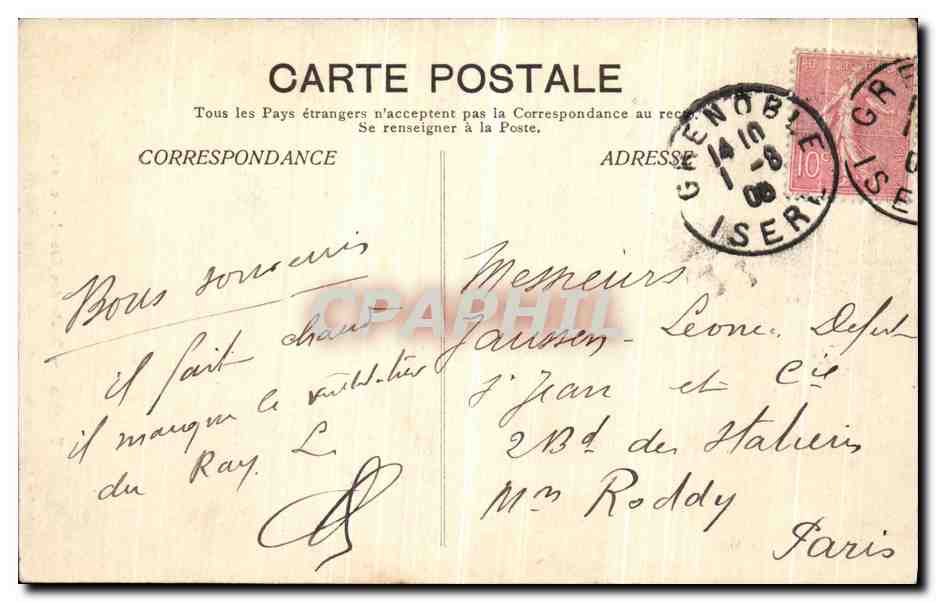 CARTE POSTALE
Tous les Pays étrangers n'acceptent pas la Correspondance au recto.
Se renseigner à la Poste.
CORRESPONDANCE
ADRESSE
GRENOBLE
14 10
1 -8
ISERE
10c
GRE
ISE
Bons souvenirs
il fait chaud
il manque le ventilateur
du Ray. L.
Messieurs
Jaussen - Leone
St Jean et Cie
2 Bd des Italiens
Mon Roddy
Paris
CPAPHIL